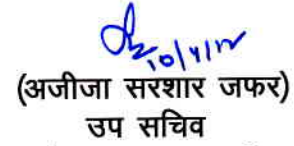 10/4/12
(अजीजा सरशार जफर)
उप सचिव